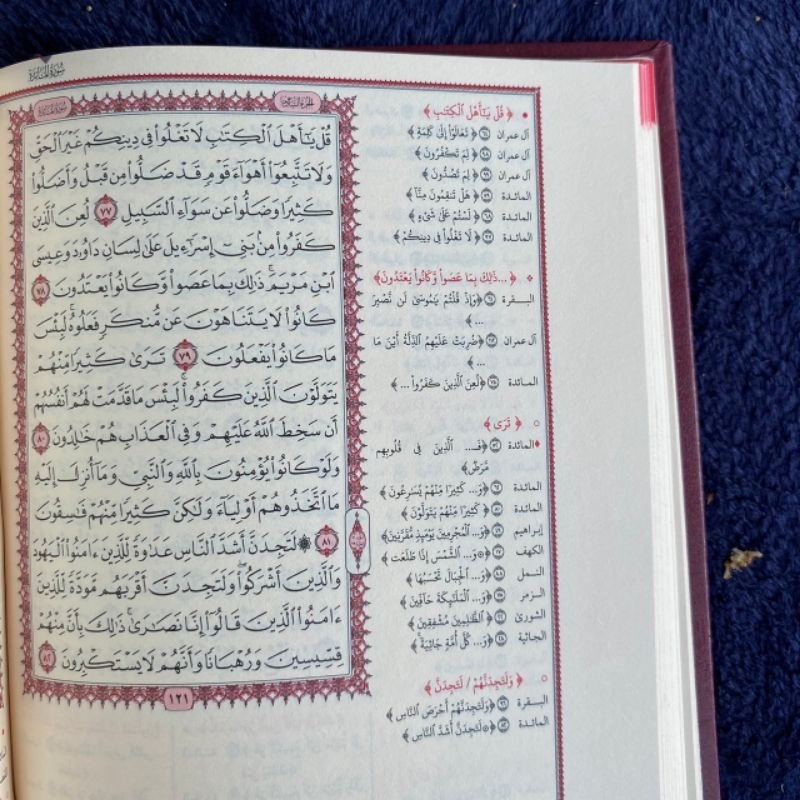 سُورَةُ المَائدَةِ
الجزء السادس
سُورَةُ المَائدَةِ
قُلْ يَٰٓأَهْلَ ٱلْكِتَٰبِ لَا تَغْلُوا۟ فِى دِينِكُمْ غَيْرَ ٱلْحَقِّ
وَلَا تَتَّبِعُوٓا۟ أَهْوَآءَ قَوْمٍ قَدْ ضَلُّوا۟ مِن قَبْلُ وَأَضَلُّوا۟
كَثِيرًا وَضَلُّوا۟ عَن سَوَآءِ ٱلسَّبِيلِ ٧٧ لُعِنَ ٱلَّذِينَ
كَفَرُوا۟ مِنۢ بَنِىٓ إِسْرَٰٓءِيلَ عَلَىٰ لِسَانِ دَاوُۥدَ وَعِيسَى
ٱبْنِ مَرْيَمَ ۚ ذَٰلِكَ بِمَا عَصَوا۟ وَّكَانُوا۟ يَعْتَدُونَ ٧٨
كَانُوا۟ لَا يَتَنَاهَوْنَ عَن مُّنكَرٍ فَعَلُوهُ ۚ لَبِئْسَ
مَا كَانُوا۟ يَفْعَلُونَ ٧٩ تَرَىٰ كَثِيرًا مِّنْهُمْ
يَتَوَلَّوْنَ ٱلَّذِينَ كَفَرُوا۟ ۚ لَبِئْسَ مَا قَدَّمَتْ لَهُمْ أَنفُسُهُمْ
أَن سَخِطَ ٱللَّهُ عَلَيْهِمْ وَفِى ٱلْعَذَابِ هُمْ خَٰلِدُونَ ٨٠
وَلَوْ كَانُوا۟ يُؤْمِنُونَ بِٱللَّهِ وَٱلنَّبِىِّ وَمَآ أُنزِلَ إِلَيْهِ
مَا ٱتَّخَذُوهُمْ أَوْلِيَآءَ وَلَٰكِنَّ كَثِيرًا مِّنْهُمْ فَٰسِقُونَ
٨١ ۞ لَتَجِدَنَّ أَشَدَّ ٱلنَّاسِ عَدَٰوَةً لِّلَّذِينَ ءَامَنُوا۟ ٱلْيَهُودَ
وَٱلَّذِينَ أَشْرَكُوا۟ ۖ وَلَتَجِدَنَّ أَقْرَبَهُم مَّوَدَّةً لِّلَّذِينَ
ءَامَنُوا۟ ٱلَّذِينَ قَالُوٓا۟ إِنَّا نَصَٰرَىٰ ۚ ذَٰلِكَ بِأَنَّ مِنْهُمْ
قِسِّيسِينَ وَرُهْبَانًا وَأَنَّهُمْ لَا يَسْتَكْبِرُونَ ٨٢
١٢١
﴿ قُلْ يَٰٓأَهْلَ ٱلْكِتَٰبِ ﴾
آل عمران ﴿ تَعَالَوْا۟ إِلَىٰ كَلِمَةٍ ﴾
آل عمران ﴿ لِمَ تَكْفُرُونَ ﴾
آل عمران ﴿ لِمَ تَصُدُّونَ ﴾
المائدة ﴿ هَلْ تَنقِمُونَ مِنَّآ ﴾
المائدة ﴿ لَسْتُمْ عَلَىٰ شَىْءٍ ﴾
المائدة ﴿ لَا تَغْلُوا۟ فِى دِينِكُمْ ﴾
﴿ ...ذَٰلِكَ بِمَا عَصَوا۟ وَّكَانُوا۟ يَعْتَدُونَ ﴾
البقرة ﴿وَإِذْ قُلْتُمْ يَٰمُوسَىٰ لَن نَّصْبِرَ
... ﴾
آل عمران ﴿ضُرِبَتْ عَلَيْهِمُ ٱلذِّلَّةُ أَيْنَ مَا
... ﴾
المائدة ﴿لُعِنَ ٱلَّذِينَ كَفَرُوا۟ ... ﴾
﴿ تَرَى ﴾
المائدة ﴿فَـ... ٱلَّذِينَ فِى قُلُوبِهِم
مَّرَضٌ ﴾
المائدة ﴿وَ... كَثِيرًا مِّنْهُمْ يُسَٰرِعُونَ ﴾
المائدة ﴿ كَثِيرًا مِّنْهُمْ يَتَوَلَّوْنَ ﴾
إبراهيم ﴿وَ... ٱلْمُجْرِمِينَ يَوْمَئِذٍ مُّقَرَّنِينَ ﴾
الكهف ﴿۞وَ... ٱلشَّمْسَ إِذَا طَلَعَت ﴾
النمل ﴿وَ... ٱلْجِبَالَ تَحْسَبُهَا ﴾
الزمر ﴿وَ... ٱلْمَلَٰٓئِكَةَ حَآفِّينَ ﴾
الشورى ﴿... ٱلظَّٰلِمِينَ مُشْفِقِينَ ﴾
الجاثية ﴿وَ... كُلَّ أُمَّةٍ جَاثِيَةً ﴾
﴿ وَلَتَجِدَنَّهُمْ / لَتَجِدَنَّ ﴾
البقرة ﴿وَلَتَجِدَنَّهُمْ أَحْرَصَ ٱلنَّاسِ ﴾
المائدة ﴿۞لَتَجِدَنَّ أَشَدَّ ٱلنَّاسِ ﴾